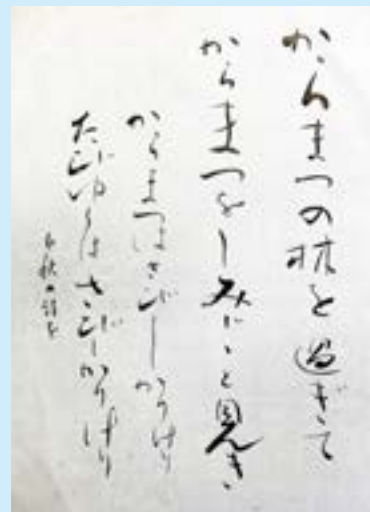 からまつの林を過ぎて
からまつをしみじみと見き
からまつはさびしかりけり
たびゆくはさびしかりけり
白秋の詩を